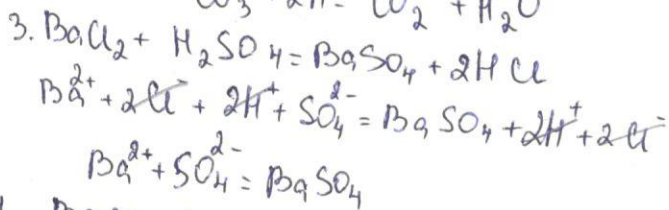 CO₂ + H₂O
3. BaCl₂ + H₂SO₄ = BaSO₄ + 2HCl
Ba²⁺ + 2Cl⁻ + 2H⁺ + SO₄²⁻ = BaSO₄ + 2H⁺ + 2Cl⁻
Ba²⁺ + SO₄²⁻ = BaSO₄